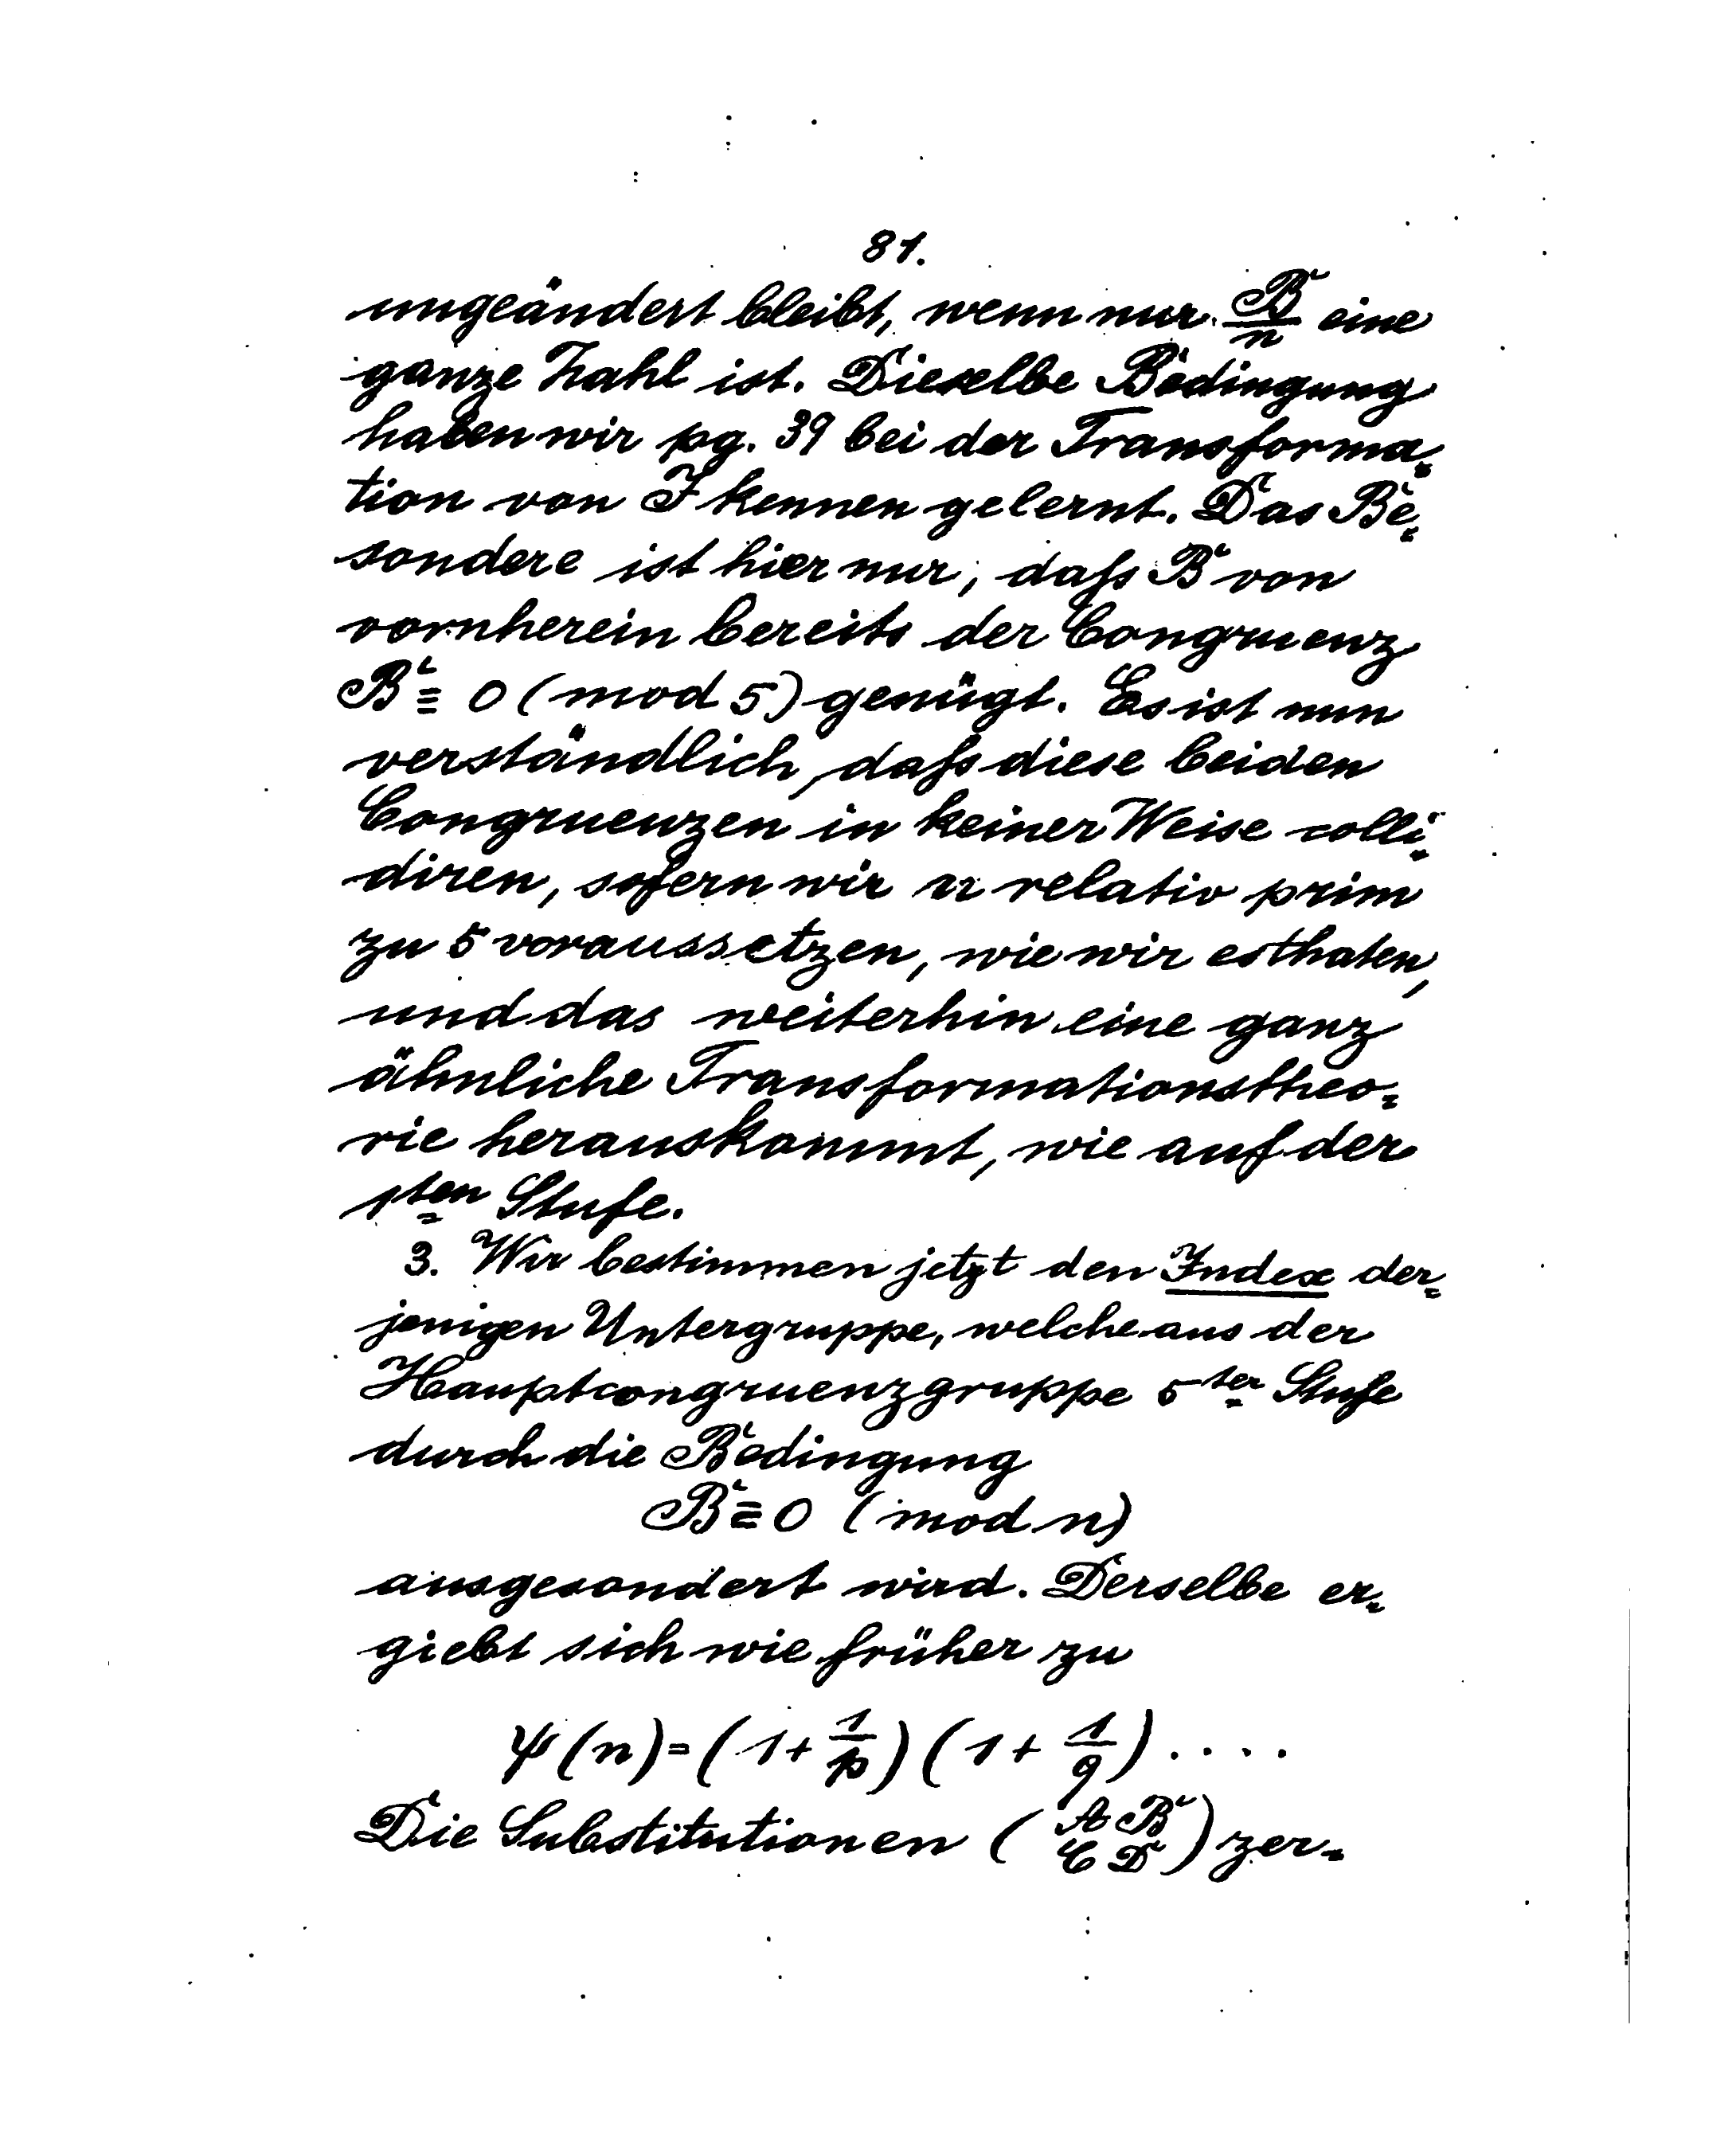 81.
ungeändert bleibt, wenn nur B/n eine
ganze Zahl ist. Dieselbe Bedingung
haben wir pg. 39 bei der Transforma=
tion von J kennen gelernt. Das Be=
sondere ist hier nur, daſs B von
vornherein bereits der Congruenz
B ≡ 0 (mod 5) genügt. Es ist nun
verständlich, daſs diese beiden
Congruenzen in keiner Weise colli=
diren, sofern wir n relativ prim
zu 5 voraussetzen, wie wir es thaten,
und das weiterhin eine ganz
ähnliche Transformationstheo=
rie herauskommt, wie auf der
1ten Stufe.
3. Wir bestimmen jetzt den Index der=
jenigen Untergruppe, welche aus der
Hauptcongruenzgruppe 5ter Stufe
durch die Bedingung
B ≡ 0 (mod n)
ausgesondert wird. Derselbe er=
giebt sich wie früher zu
ψ(n) = (1 + 1/p)(1 + 1/q) ....
Die Substitutionen (A B C D) zer=